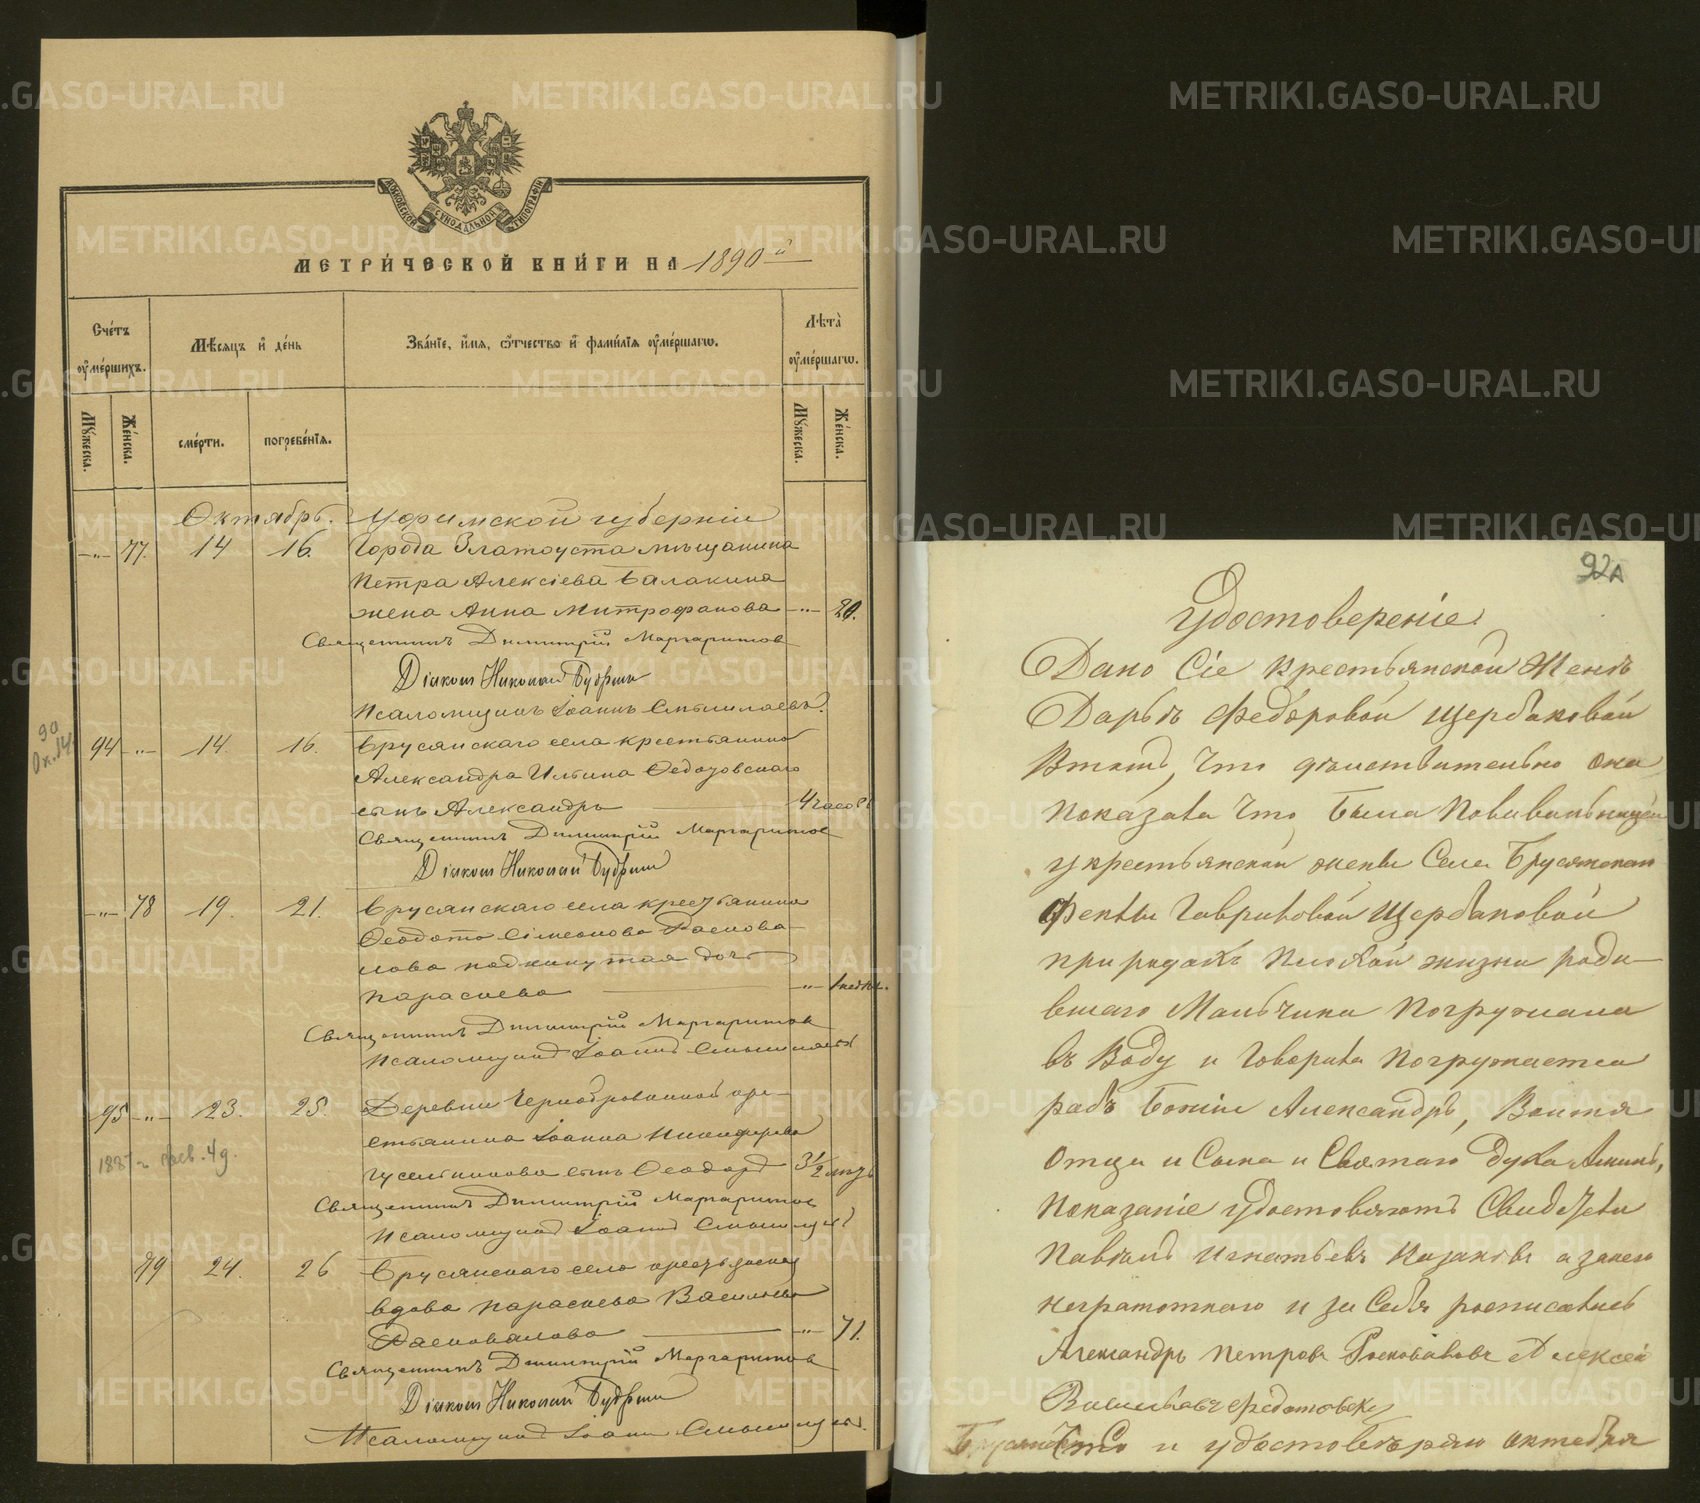 МОСКОВСКОЙ СѴНОДАЛЬНОЙ ТИПОГРАФІИ
МЕТРИ́ЧЕСКОЙ КНИ́ГИ НА 1890 й
Сче́тъ ᲂу҆ме́ршихъ.
Мѣ́сяцъ и҆ де́нь
Зва́нїе, и҆́мѧ, ѻ҆́тчество и҆ фами́лїѧ ᲂу҆ме́ршагѡ.
Лѣта̀ ᲂу҆ме́ршагѡ.
Мꙋ́жеска.
Же́нска.
сме́рти.
погребе́нїѧ.
Мꙋ́жеска.
Же́нска.
Октябрь. Уфимской губерніи
—"— 77. 14 16. Города Златоуста мѣщанина
Петра Алексіева Балакина
жена Анна Митрофанова —"— 20.
Священникъ Димитрій Маргаритовъ
Діаконъ Николай Будринъ
Псаломщикъ Іоаннъ Смышляевъ.
90
Ок. 14
94 —"— 14. 16. Брусянскаго села крестьянина
Александра Ильина Федотовскаго
сынъ Александръ 4 часовъ
Священникъ Димитрій Маргаритовъ
Діаконъ Николай Будринъ
—"— 78 19. 21. Брусянскаго села крестьянина
Ѳеодота Сімеонова Расковалова
подкинутая дочь
Параскева —"— 1 нед.
Священникъ Димитрій Маргаритовъ
Псаломщикъ Іоаннъ Смышляевъ
95 —"— 23. 25. Деревни Чернобровиной кре-
стьянина Іоанна Никифорова
Гусельникова сынъ Ѳеодоръ 3½ лѣтъ
1887 г. фев. 4 д.
Священникъ Димитрій Маргаритовъ
Псаломщикъ Іоаннъ Смышляевъ
79 24. 26 Брусянскаго села крестьянская
вдова Параскева Васильева
Расковалова —"— 71.
Священникъ Димитрій Маргаритовъ
Діаконъ Николай Будринъ
Псаломщикъ Іоаннъ Смышляевъ.
92А
Удостоверенiе
Дано Сiе крестьянской Женѣ
Дарьѣ Федоровой Щербаковой
Втомъ, Что действительно она
показала Что Была Повивальницей
у крестьянской жены Села Брусянскаго
Феклы Гавриловой Щербаковой
при родахъ Плохой жизни роди-
вшаго Мальчика Погружала
въ Воду и Говорила Погружается
рабъ Божiи Александръ, Воимя
Отца и Сына и Святаго Духа Аминь,
Показанiе Удостоверяютъ Свидетели
Павелъ Игнатьевъ Казаковъ а занего
неграмотнаго и за Себя росписались
Александръ Петровъ Росковаловъ Алексей
Васильевъ Федотовских
Брусянское и удостоверяю октября